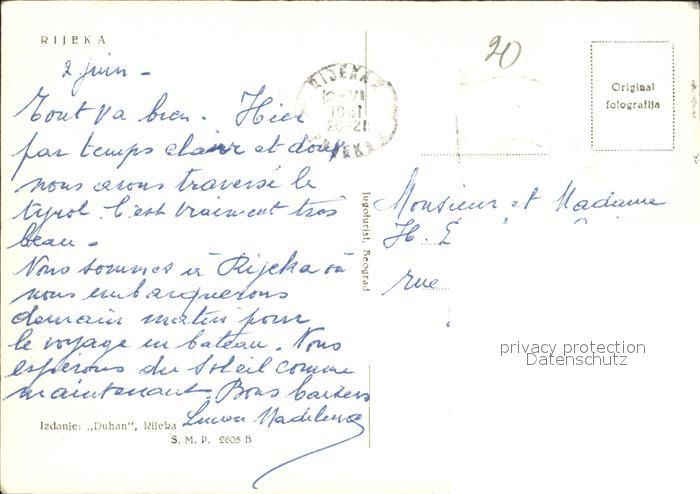 RIJEKA
2 juin -
Tout va bien. Hier
par temps clair et doux
nous avons traversé le
tyrol. C'est vraiment très
beau.
Nous sommes à Rijeka où
nous embarquerons
demain matin pour
le voyage en bateau. Nous
espérons du Soleil comme
maintenant. Bons baisers
Madeleine
Izdanje: „Duhan”, Rijeka
S. M. P. 2605 B
Jugoturist, Beograd
RIJEKA 2
1961
20-21
RIJEKA 2
20
Original
fotografija
Monsieur et Madame
H.
rue
privacy protection
Datenschutz